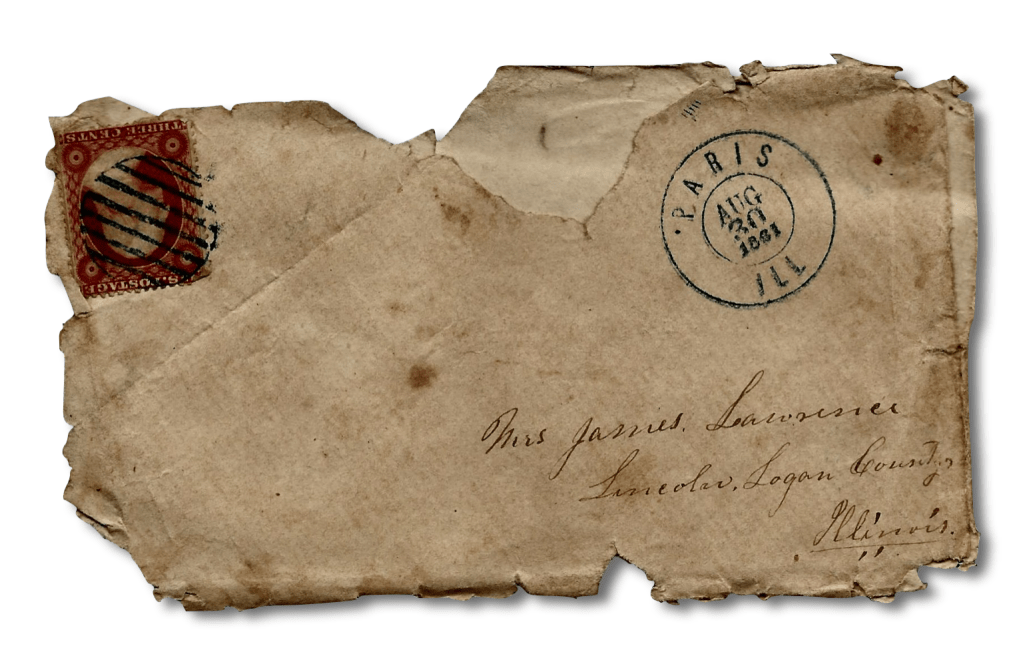 THREE CENTS
U.S. POSTAGE
PARIS
AUG
30
1861
ILL
Mrs James. Lawrence
Lincoln, Logan County,
Illinois.